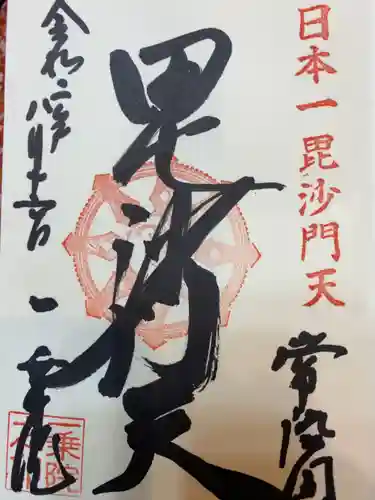 日本一毘沙門天
常陸國
毘沙門天
令和二年八月十一日
一乗院
一乗院